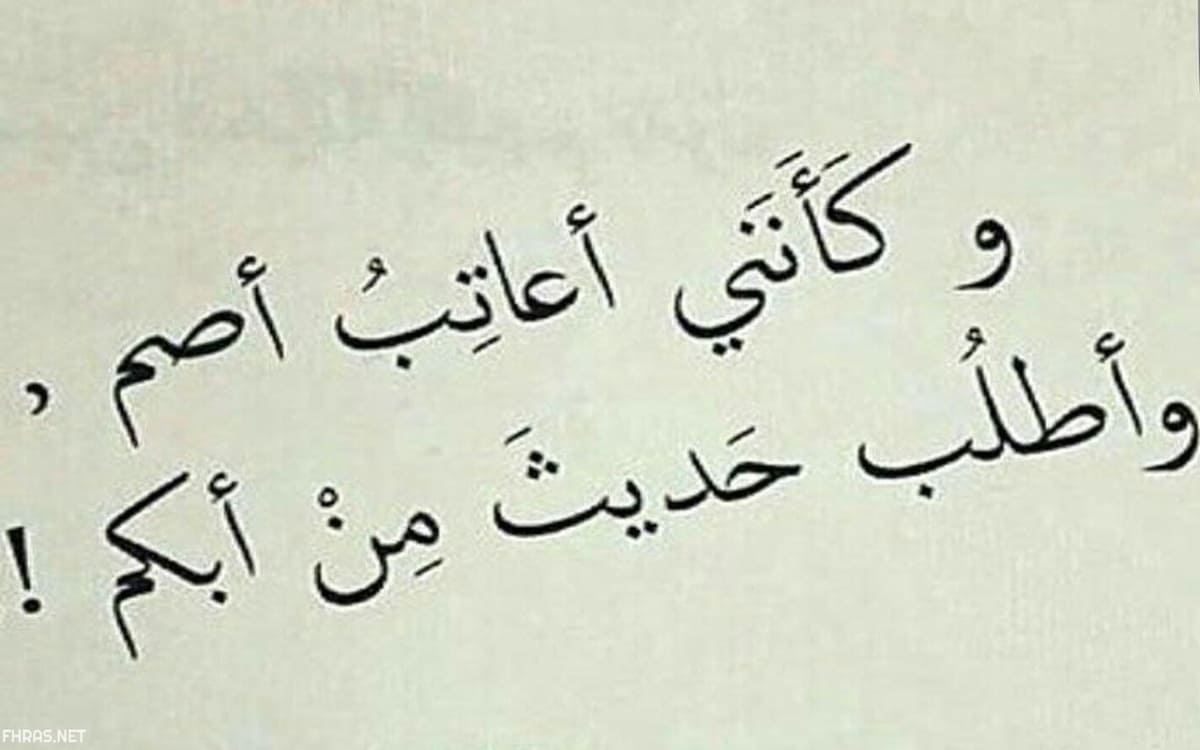 و كَأَنَني أعاتِبُ أصم ,
وأطلُب حَديثَ مِنْ أبكم !
FHRAS.NET